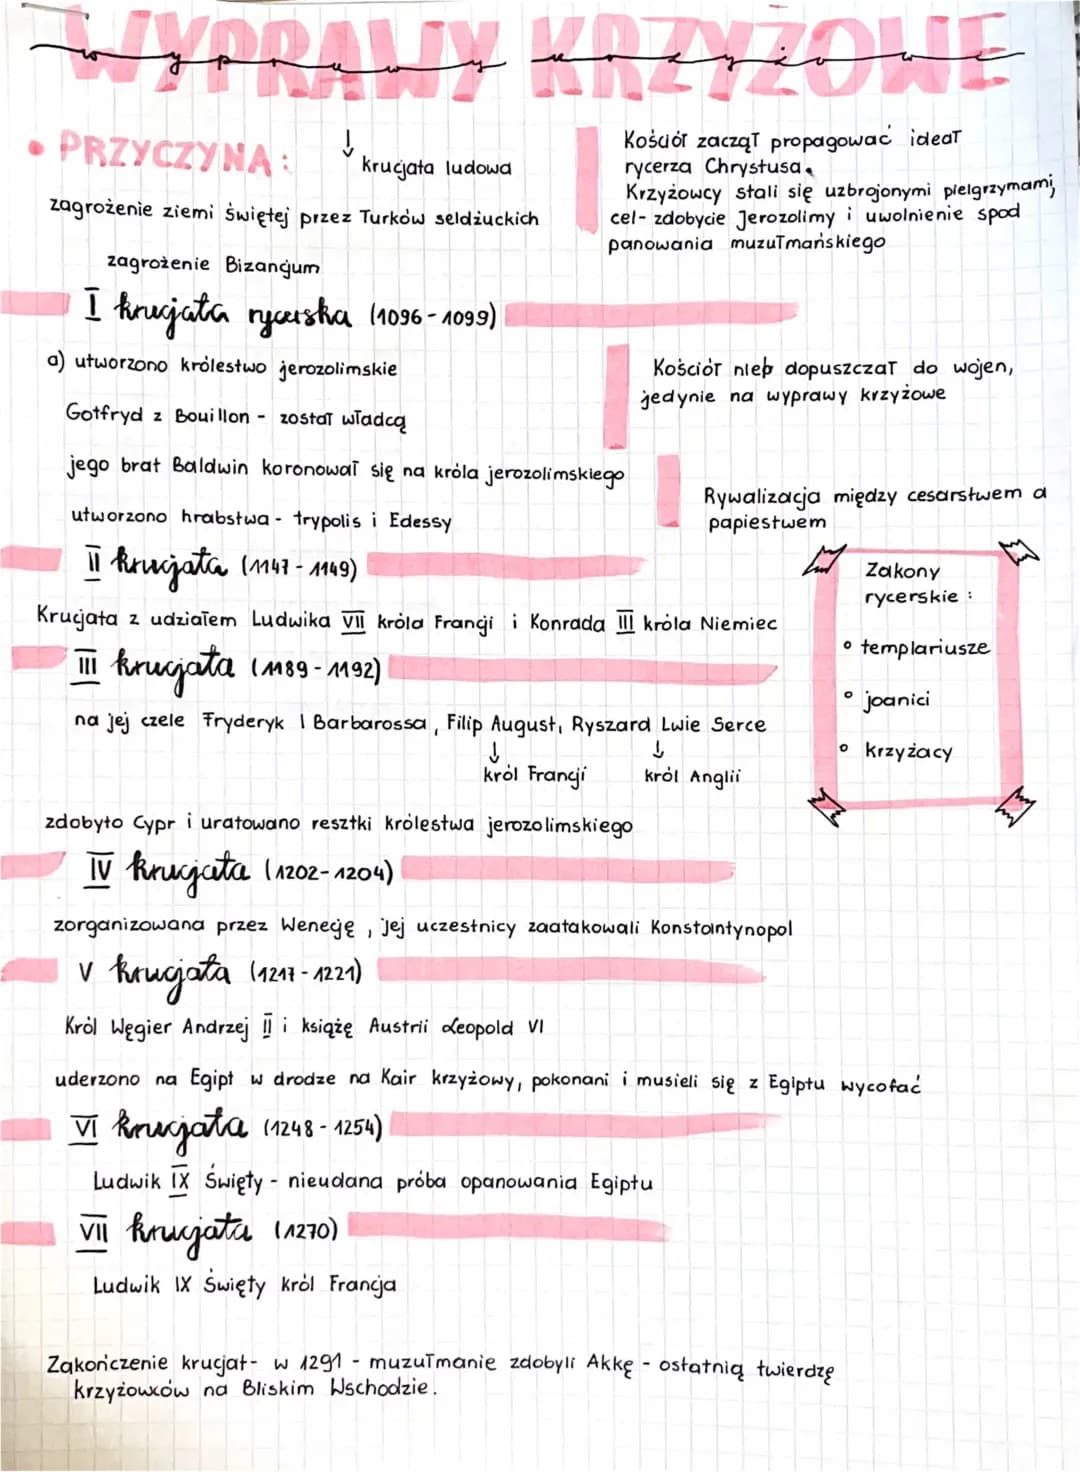 WYPRAWY KRZYŻOWE
wyprawy krzyżowe
• PRZYCZYNA:
↓
krucjata ludowa
zagrożenie ziemi świętej przez Turków seldżuckich
zagrożenie Bizancjum
Kościół zaczął propagować ideał
rycerza Chrystusa.
Krzyżowcy stali się uzbrojonymi pielgrzymami,
cel- zdobycie Jerozolimy i uwolnienie spod
panowania muzułmańskiego
I krucjata rycerska (1096-1099)
a) utworzono królestwo jerozolimskie
Gotfryd z Bouillon - został władcą
jego brat Baldwin koronował się na króla jerozolimskiego
utworzono hrabstwa - trypolis i Edessy
Kościół nie dopuszczał do wojen,
jedynie na wyprawy krzyżowe
Rywalizacja między cesarstwem a
papiestwem
II krucjata (1147-1149)
Krucjata z udziałem Ludwika VII króla Francji i Konrada III króla Niemiec
III krucjata (1189-1192)
na jej czele Fryderyk I Barbarossa, Filip August, Ryszard Lwie Serce
↓ ↓
król Francji król Anglii
zdobyto Cypr i uratowano resztki królestwa jerozolimskiego
Zakony
rycerskie:
° templariusze
° joanici
° krzyżacy
IV krucjata (1202-1204)
zorganizowana przez Wenecję, jej uczestnicy zaatakowali Konstantynopol
V krucjata (1217-1221)
Król Węgier Andrzej II i książę Austrii Leopold VI
uderzono na Egipt w drodze na Kair krzyżowy, pokonani i musieli się z Egiptu wycofać
VI krucjata (1248-1254)
Ludwik IX Święty - nieudana próba opanowania Egiptu
VII krucjata (1270)
Ludwik IX Święty król Francja
Zakończenie krucjat- w 1291 - muzułmanie zdobyli Akkę - ostatnią twierdzę
krzyżowców na Bliskim Wschodzie.